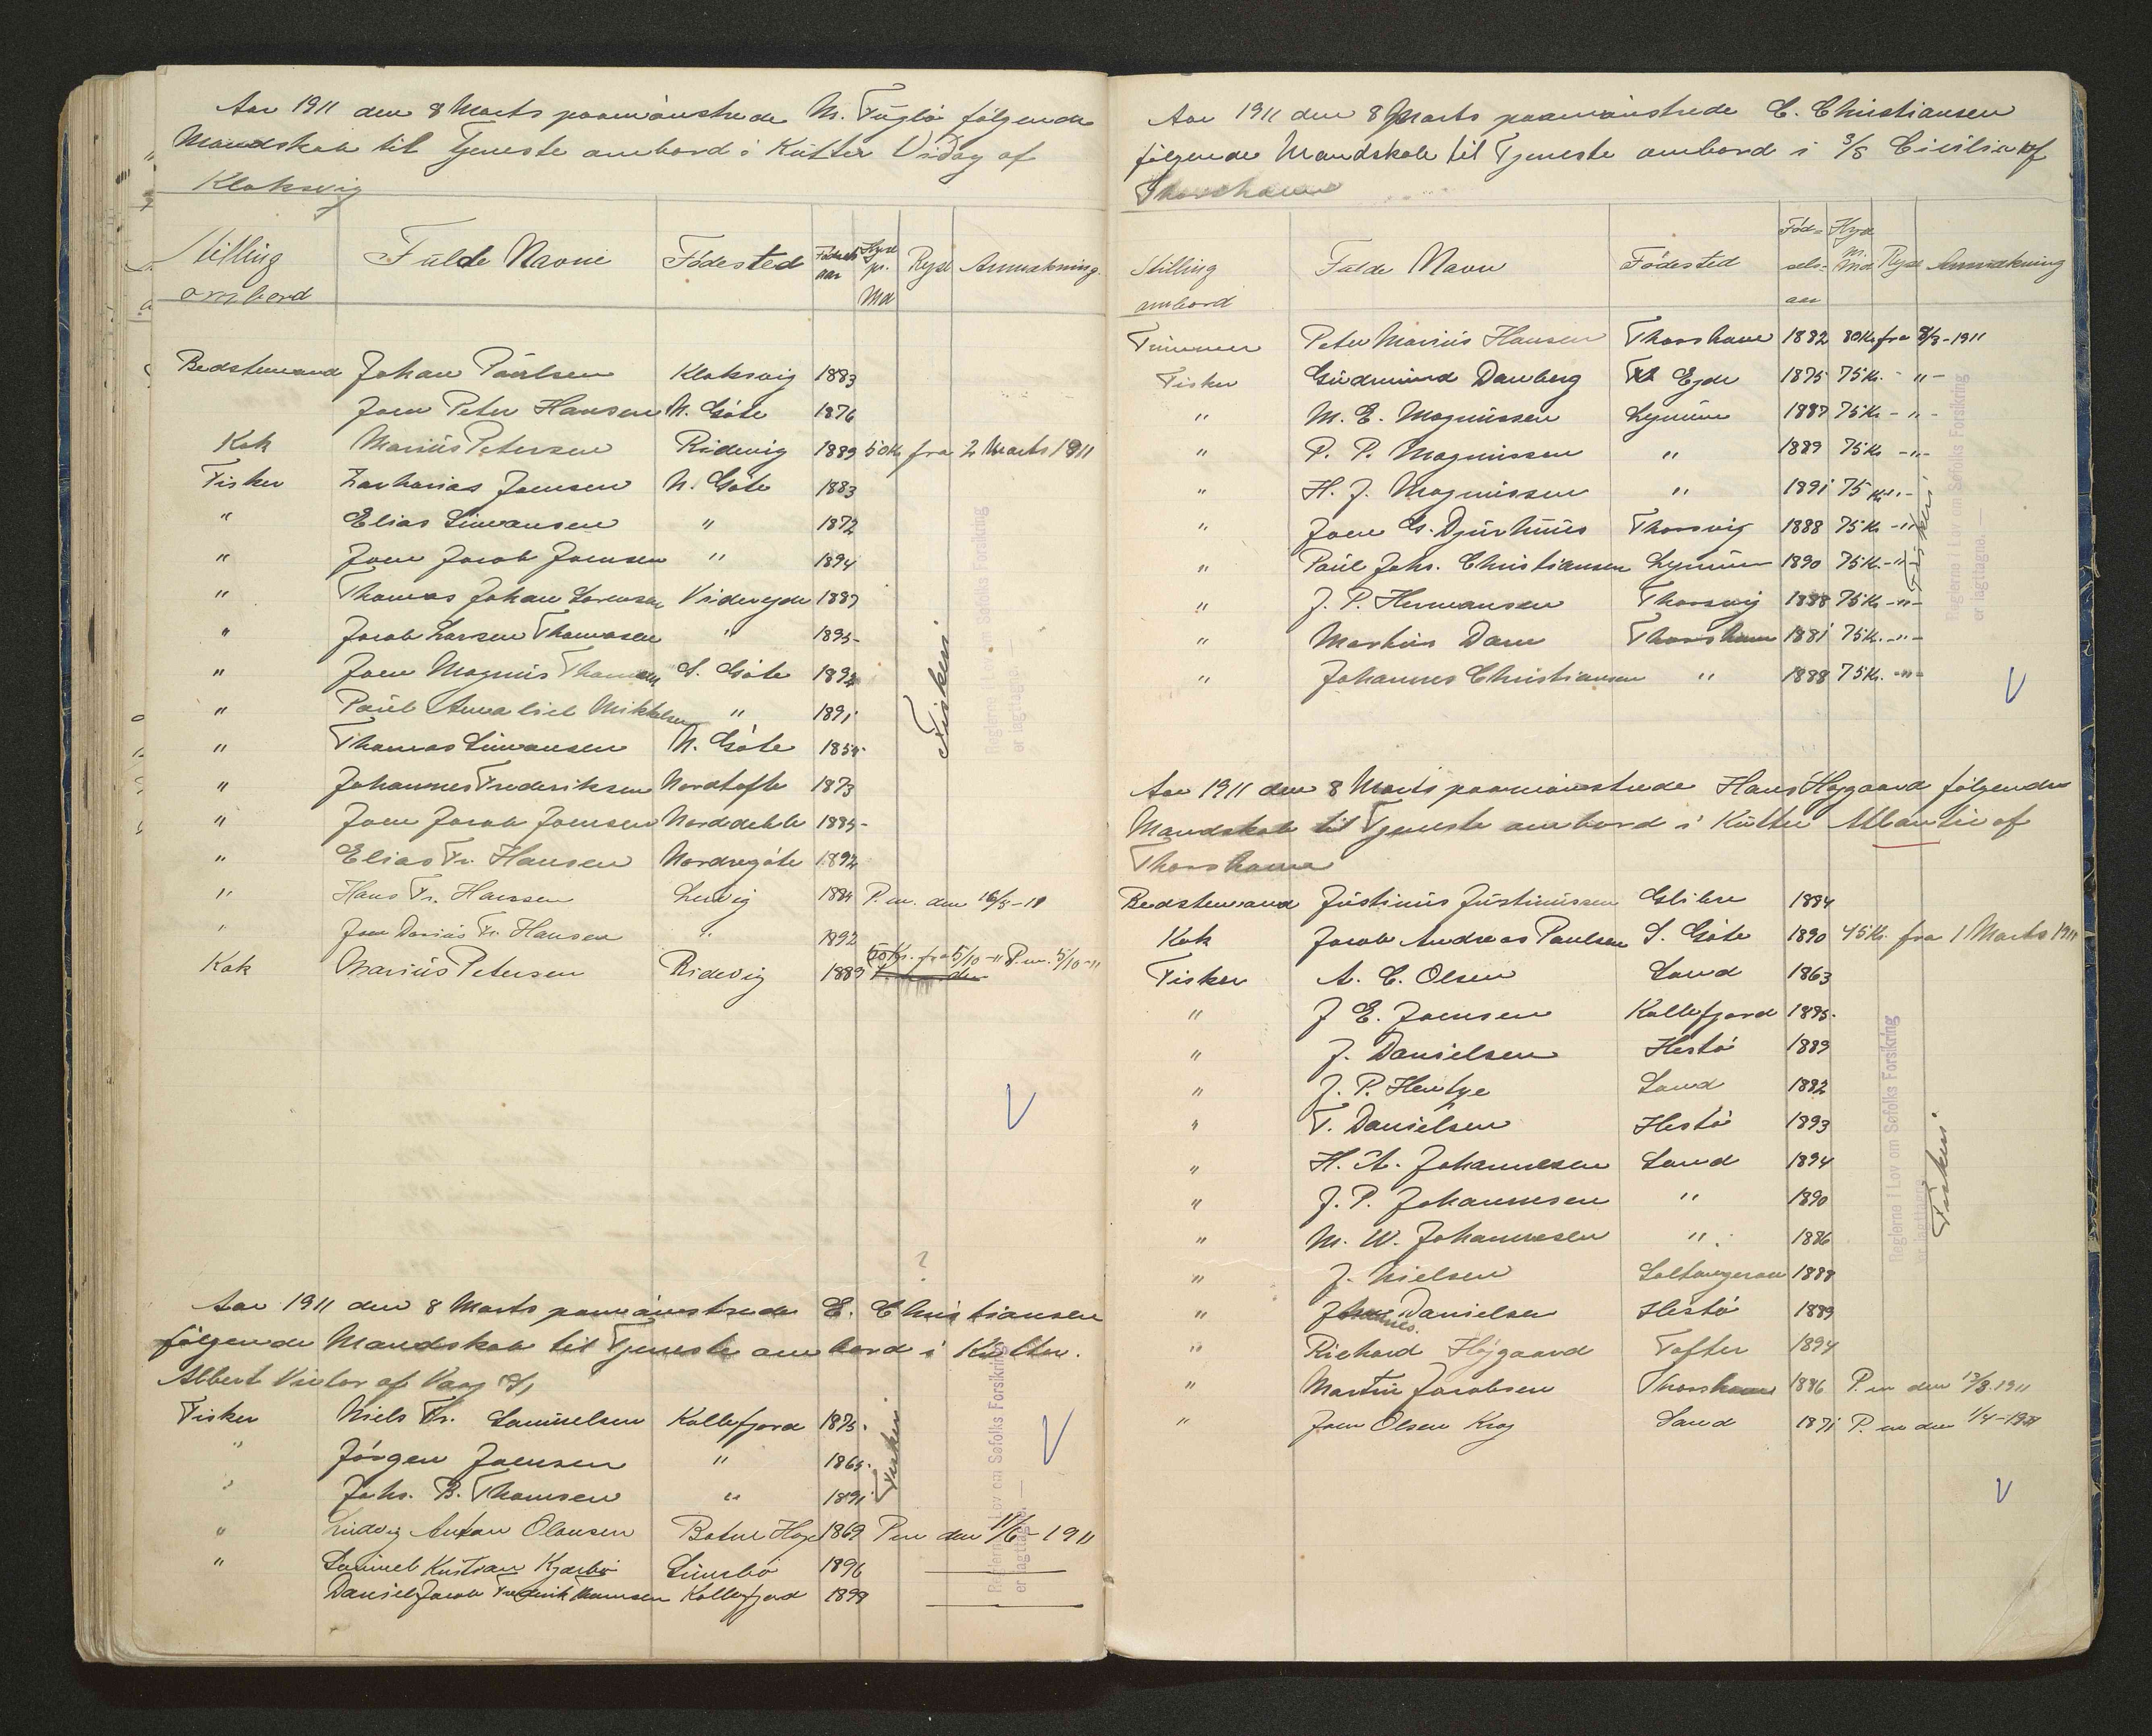 Aar 1911 den 8 Marts paamönstrede M. Fuglö følgende
Mandskab til Tjeneste ombord i Kutter Vidöy af
Klaksvig
Stilling ombord Fulde Navne Födested Födselsaar Hyre pr. Md Rejse Anmærkning
Bedstemand Johan Poulsen Klaksvig 1883
Joen Peter Hansen N. Göte 1876
Kok Marius Petersen Ridevig 1889 50 Kr fra 2 Marts 1911
Fisker Zacharias Joensen N. Göte 1883
" Elias Simonsen " 1872
" Joen Jacob Joensen " 1894
" Thomas Johan Sorensen Videreyde 1887
" Jacob Larsen Thomasen " 1895
" Joen Magnus Thomsen S. Göte 1892
" Poul Mikkelsen " 1891
" Thomas Simonsen N. Göte 1854
" Johannes Frederiksen Nordtofte 1873
" Joen Jacob Joensen Norddeble 1885
" Elias Fr. Hansen Nordregöte 1892
" Hans Fr. Hansen Lervig 1884 P.m. den 16/5-11
" Joen Darius Fr. Hansen " 1892
Kok Marius Petersen Ridevig 1889 50 Kr. fra 5/10-11 P.m. 5/10-11
Fiskeri
Reglerne i Lov om Søfolks Forsikring
er iagttagne. —
?
Aar 1911 den 8 Marts paamönstrede E. Christiansen
følgende Mandskab til Tjeneste ombord i Kutter.
Albert Victor af Vaag
Fisker Niels Fr. Samuelsen Kollefjord 1875
" Jörgen Joensen " 1865
" Johs. B. Thomsen " 1891
" Ludvig Anton Olausen 1869 P.m den 11/6-1911
" Samuel Kjærbo Sumbö 1896
Daniel Jacob Frederik Thomsen Kollefjord 1899
Fiskeri
Reglerne i Lov om Søfolks Forsikring
er iagttagne. —
Aar 1911 den 8 Marts paamönstrede C. Christiansen
følgende Mandskab til Tjeneste ombord i S/S Cicilia af
Thorshavn
Stilling ombord Fulde Navn Födested Födselsaar Hyre pr. Md. Rejse Anmærkning
Trimmer Peter Marius Hansen Thorshavn 1882 80 Kr fra 8/3-1911
Fisker Gudmund Danberg Ejde 1875 75 Kr. - " -
" M. E. Magnussen Lynum 1887 75 Kr - " -
" P. P. Magnussen " 1889 75 Kr - " -
" H. J. Magnussen " 1891 75 Kr. " -
" Joen G. Djurhuus Thorsvig 1888 75 Kr - " -
" Poul Johs. Christiansen Lynum 1890 75 Kr. - " -
" J. P. Hermansen Thorsvig 1888 75 Kr - " -
" Martius Dam Thorshavn 1881 75 Kr. - " -
" Johannes Christiansen " 1888 75 Kr. - " -
Fiskeri
Reglerne i Lov om Søfolks Forsikring
er iagttagne. —
Aar 1911 den 8 Marts paamönstrede Hans Højgaard følgende
Mandskab til Tjeneste ombord i Kutter Atlantic af
Thorshavn
Bedstemand Justinus Justinussen Glibre 1884
Kok Jacob Andreas Paulsen S. Göte 1890 45 Kr. fra 1 Marts 1911
Fisker A. C. Olsen Sand 1863
" J E. Joensen Kollefjord 1895
" J. Danielsen Hestö 1889
" J. P. Hentze Sand 1892
" T. Danielsen Hestö 1893
" H. A. Johannesen Sand 1894
" J. P. Johannesen " 1890
" M. W. Johannesen " 1886
" J. Nielsen Saltangeraa 1888
" Johannes. Danielsen Hestö 1889
" Richard Højgaard Tofter 1894
" Martin Jacobsen Thorshavn 1886 P.m den 13/3.1911
" Joen Olsen Krog Sand 1871 P.m den 1/4-1911
Fiskeri
Reglerne i Lov om Søfolks Forsikring
er iagttagne.